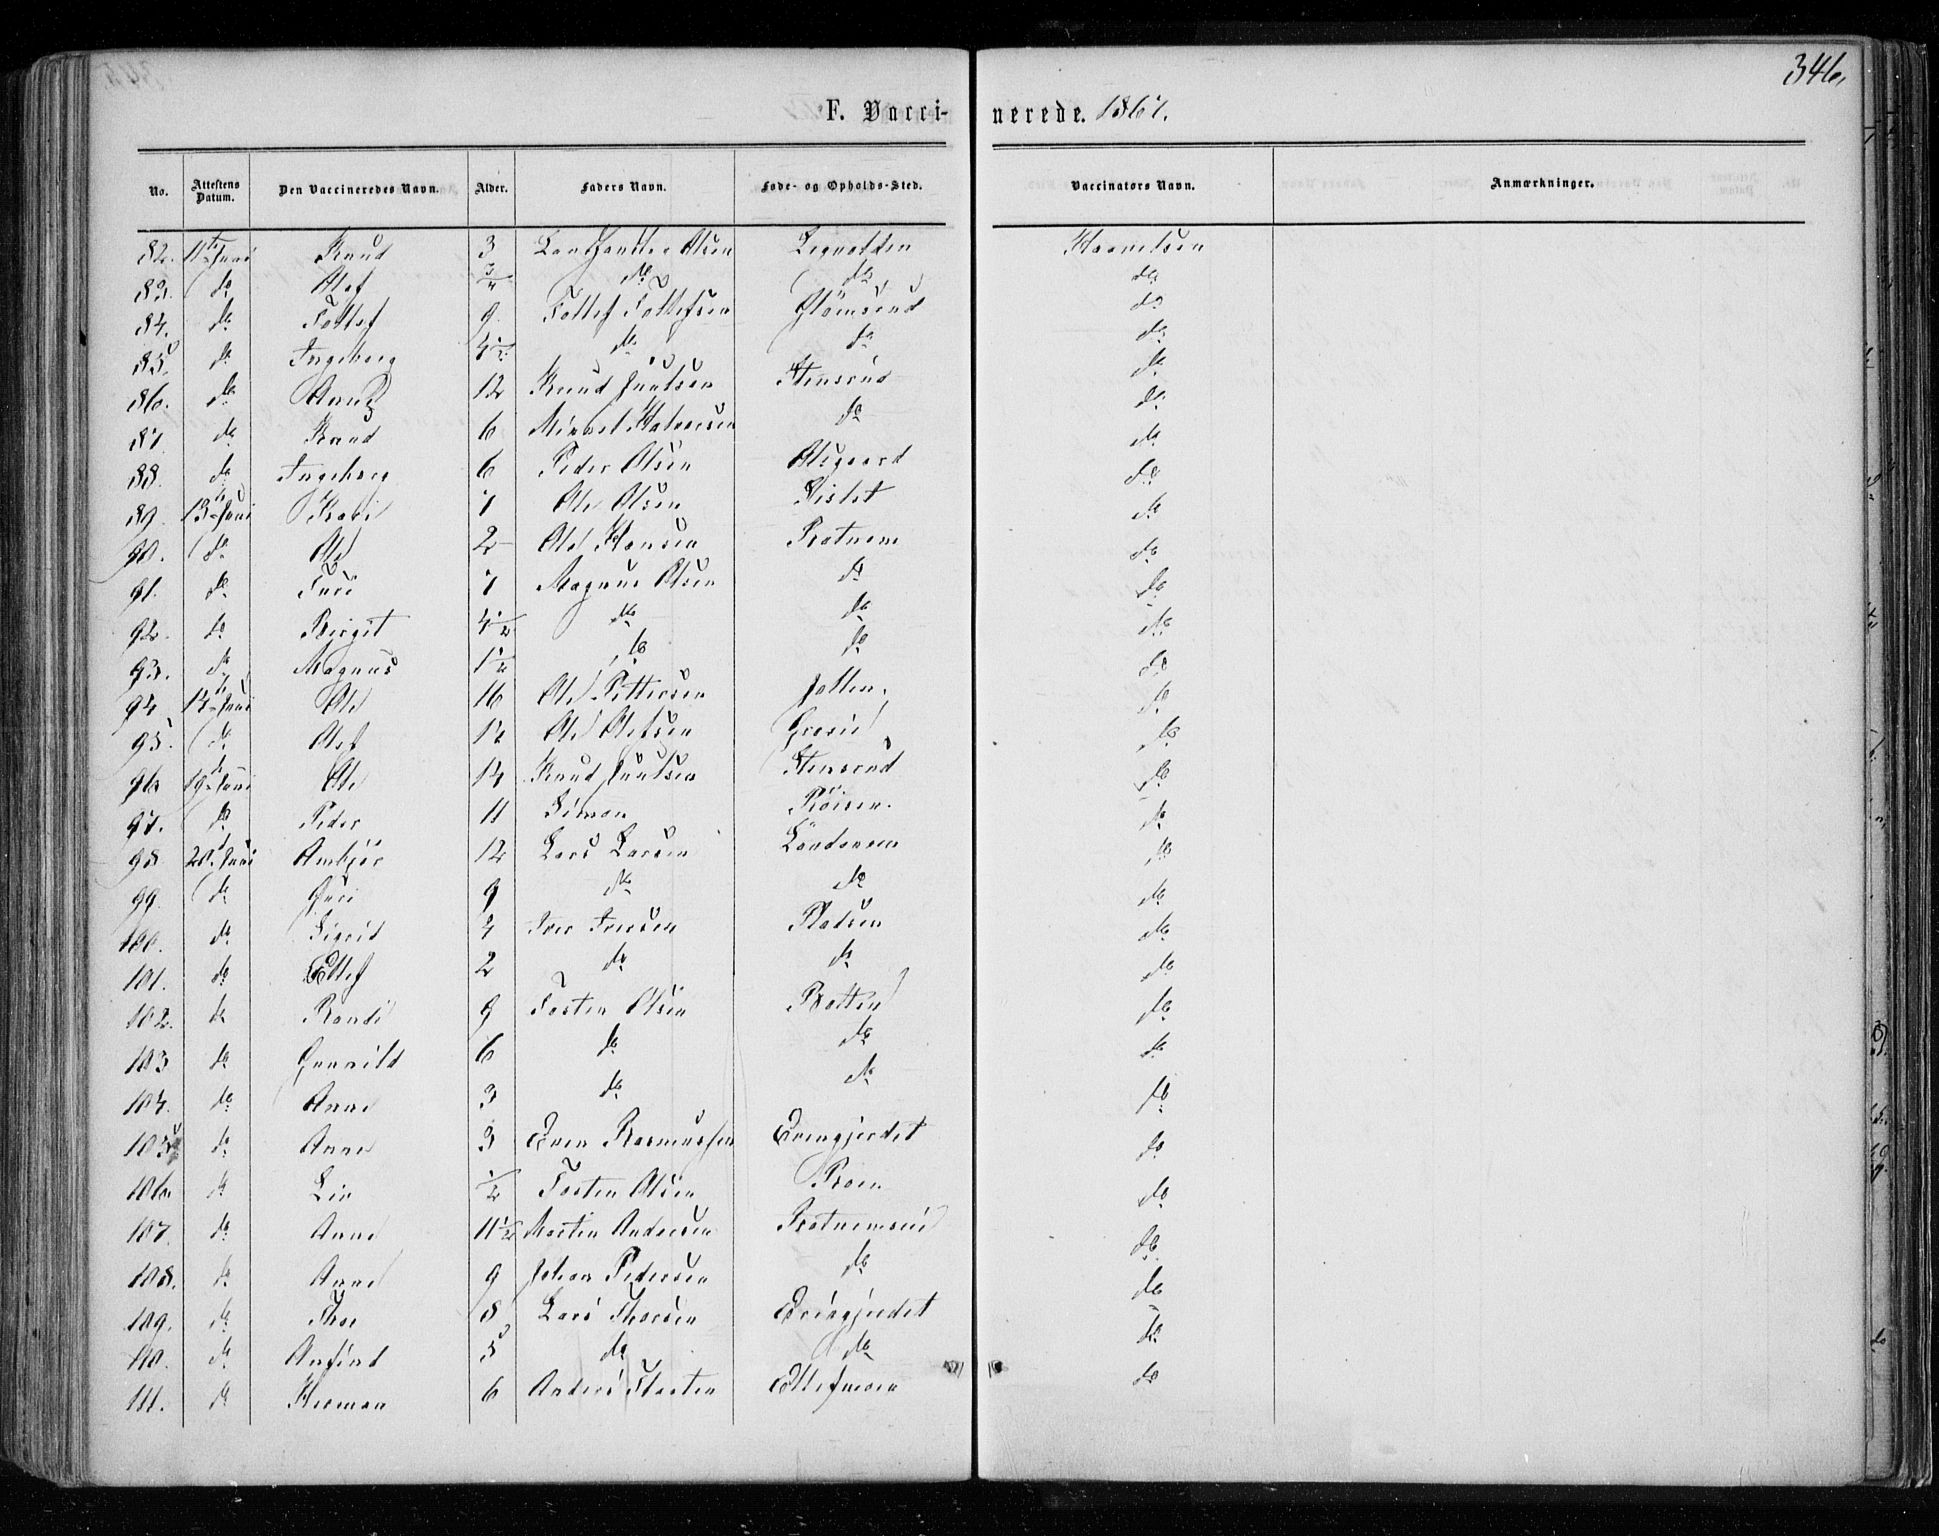 346.
F. Vaccinerede. 1867.
No. | Attestens Datum. | Den Vaccineredes Navn. | Alder. | Faders Navn. | Føde- og Opholds-Sted. | Vaccinators Navn. | Anmærkninger.
82. 11te Juni Knud 3 Olsen
83. do Olaf 3/4 do do do
84. do Tollef 9 Tollef Tollefsen do
85. do Ingeborg 4 1/2 do do do
86. do Anne 12 Knud Juulsen Stensrud do
87. do Knud 6 Halvorsen do do
88. do Ingeborg 6 Peder Olsen Alsgaard do
89. 13 Juni Kari 7 Ole Olsen do
90. do Ole 2 Ole Hansen Rotnem do
91. do Turi 7 Magnus Olsen do do
92. do Birgit 4 1/2 do do do
93. do Magnus 1 1/2 do do do
94. 14 Juni Ole 16 Ole Pettersen do
95. do Olaf 12 Ole Olsen do
96. 19 Juni Ole 14 Knud Juulsen Stensrud do
97. do Peder 11 Simon Röisen. do
98. 20. Juni Ambjør 12 Lars Larsen do
99. do Guri 9 do do do
100. do Sigrid 4 Iver Iversen Pladsen do
101. do Ellef 2 do do do
102. do Randi 9 Tosten Olsen Bratten do
103 do Gunnild 6 do do do
104. do Anne 3 do do do
105. do Anne 3 Even Rasmussen Evengjerdet do
106. do Liv 1/2 Tosten Olsen Roen do
107. do Anne 11 1/2 Martin Andersen Rotnemseie do
108. do Anne 9 Johan Pedersen do do
109. do Thor 8 Lars Thorsen do
110. do Anfind 5 do do do
111. do Herman 6 Anders Ellefmoen do